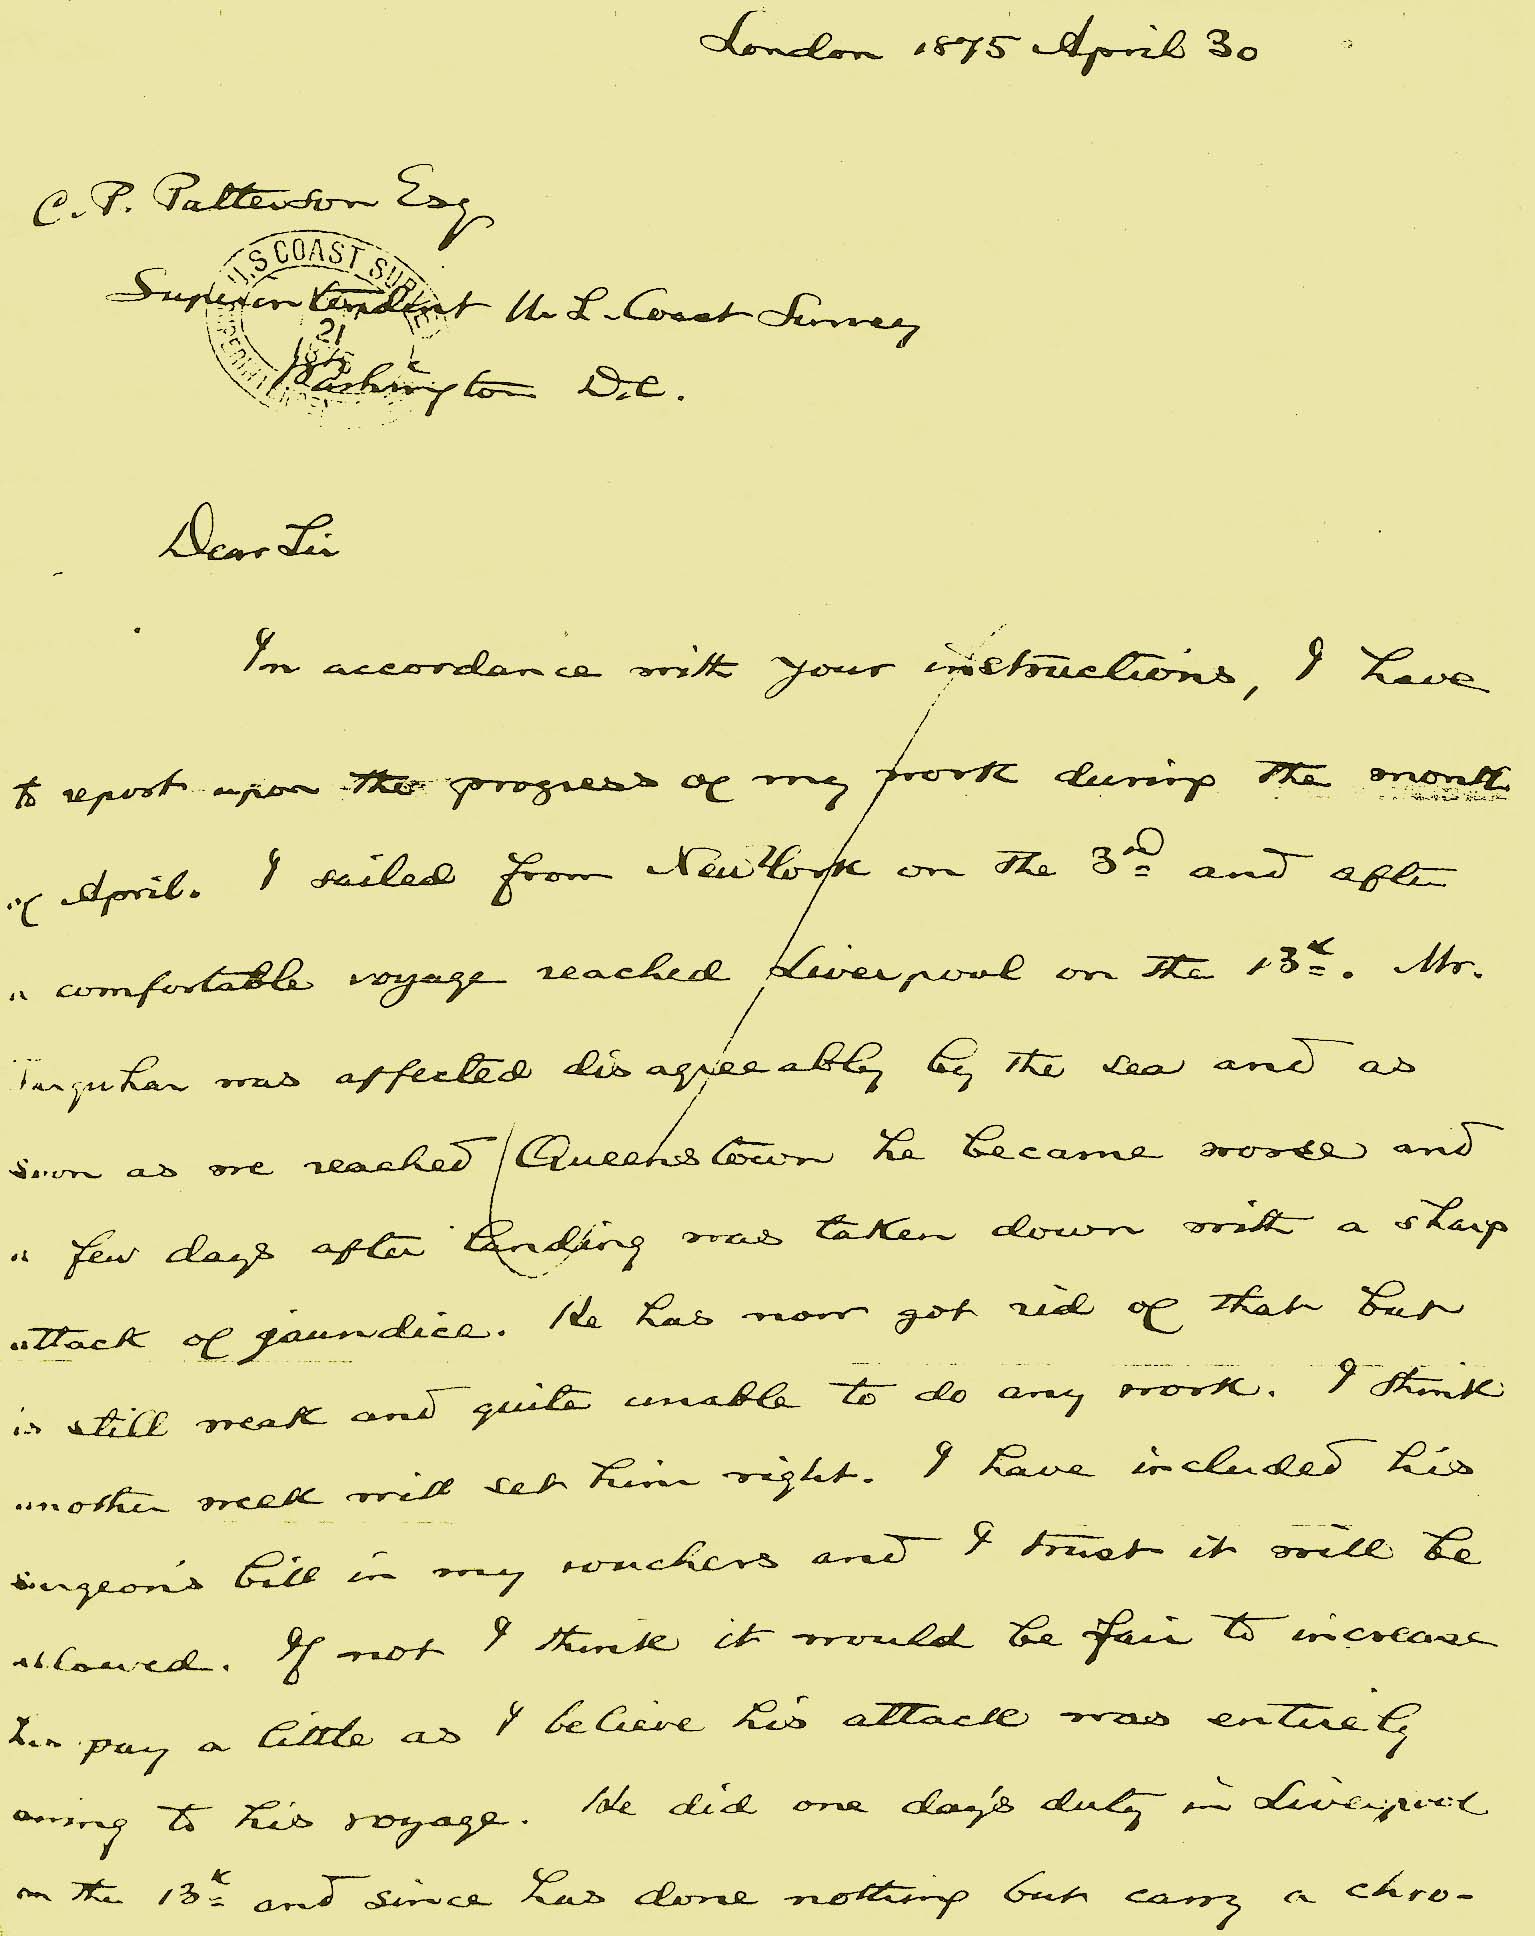 London 1875 April 30
C. P. Patterson Esq
U.S COAST SURVEY
Superintendent U. S. Coast Survey
21
1875
Washington D.C.
Dear Sir
In accordance with your instructions, I have
to report upon the progress of my work during the month
of April. I sailed from New York on the 3rd and after
a comfortable voyage reached Liverpool on the 13th. Mr.
Farquhar was affected disagreeably by the sea and as
soon as we reached Queenstown he became worse and
a few days after landing was taken down with a sharp
attack of jaundice. He has now got rid of that but
is still weak and quite unable to do any work. I think
another week will set him right. I have included his
surgeon's bill in my vouchers and I trust it will be
allowed. If not I think it would be fair to increase
his pay a little as I believe his attack was entirely
owing to his voyage. He did one day's duty in Liverpool
on the 13th and since has done nothing but carry a chro-